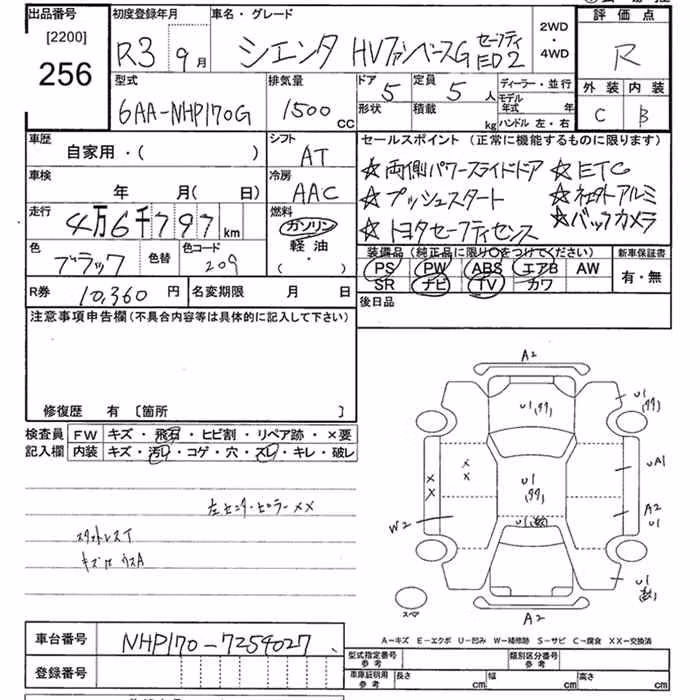 出品番号 初度登録年月 車名・グレード 評価点
[2200]
256
R3 9月 シエンタ HVファンベースG セーフティED2 2WD・4WD R
型式 排気量 ドア 定員 ディーラー・並行 外装 内装
6AA-NHP170G 1500cc 5 5人 モデル年式 年 C B
形状 積載 kg ハンドル 左・右
車歴 シフト セールスポイント (正常に機能するものに限ります)
自家用・( ) AT ☆両側パワースライドドア ☆ETC
車検 冷房 ☆プッシュスタート ☆社外アルミ
年 月( 日) AAC ☆トヨタセーフティセンス ☆バックカメラ
走行 4万6千797km 燃料 ガソリン 軽油 (・)
色 ブラック 色替 色コード 209
装備品(純正品に限り○をつけてください) 新車保証書
PS PW ABS エアB AW 有・無
SR ナビ TV カワ
R券 10,360円 名変期限 月 日 後日品
注意事項申告欄(不具合内容等は具体的に記入して下さい)
修復歴 有 [箇所 ]
検査員 FW キズ・飛石・ヒビ割・リペア跡・×要
記入欄 内装 キズ・汚レ・コゲ・穴・スレ・キレ・破レ
左センターピラーXX
スタットレスT
キズ
A2
U1
U1
UA1
U1
XX
XX
W2
A2
U1
U1
U1
スペア
A2
A-キズ E-エクボ U-凹み W-補修跡 S-サビ C-腐食 XX-交換済
車台番号 NHP170-7254027
登録番号
型式指定番号 参考 類別区分番号 参考
車庫証明用 参考 長さ cm 幅 cm 高さ cm